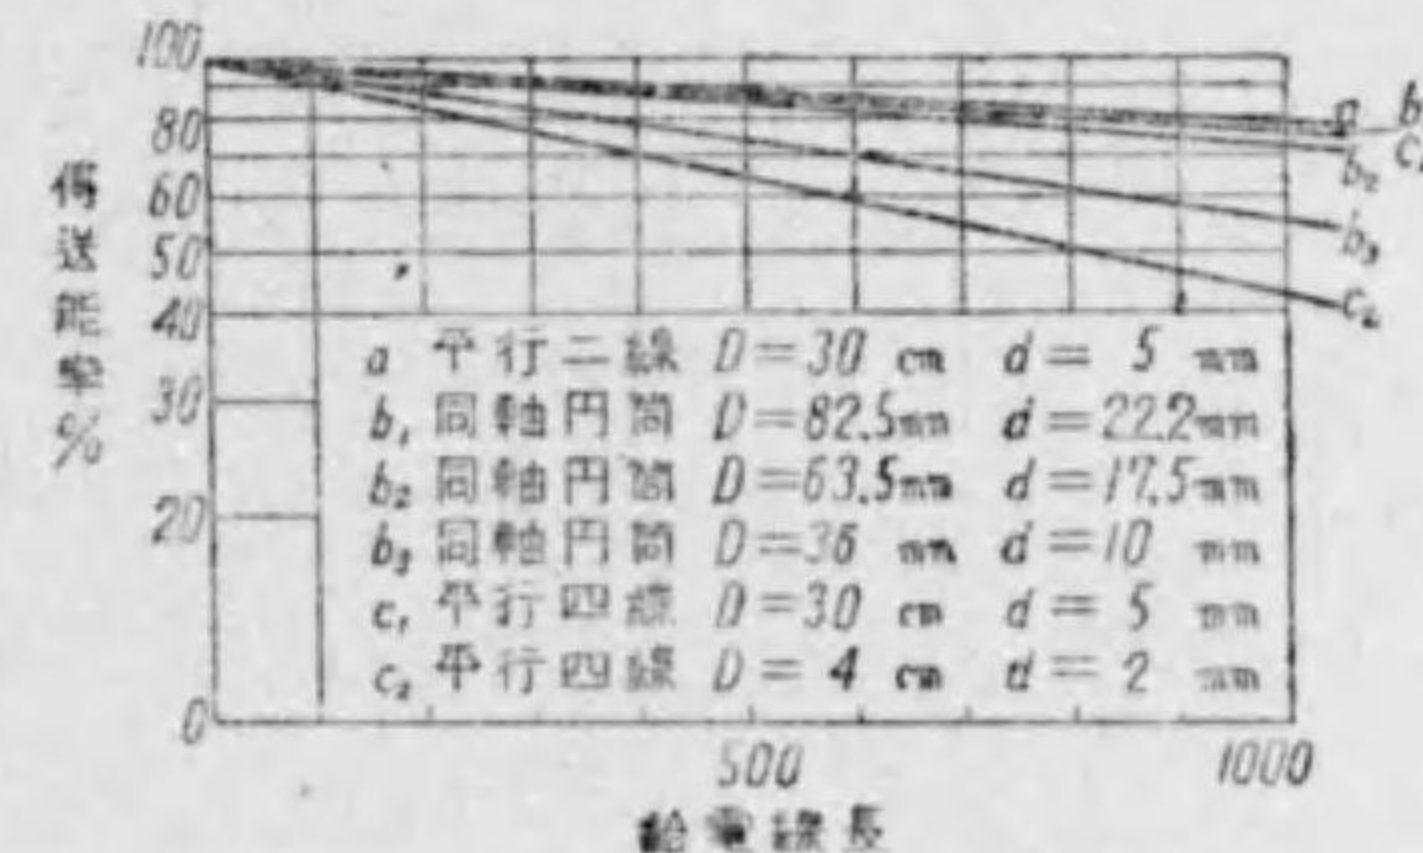 100
80
60
50
40
30
20
0
傳送能率%
a b
c
b₂
b₃
c₂
a 平行二線 D=30 cm d= 5 mm
b₁ 同軸円筒 D=82.5mm d=22.2mm
b₂ 同軸円筒 D=63.5mm d=17.5mm
b₃ 同軸円筒 D=36 mm d=10 mm
c₁ 平行四線 D=30 cm d= 5 mm
c₂ 平行四線 D= 4 cm d= 2 mm
500 1000
給電線長